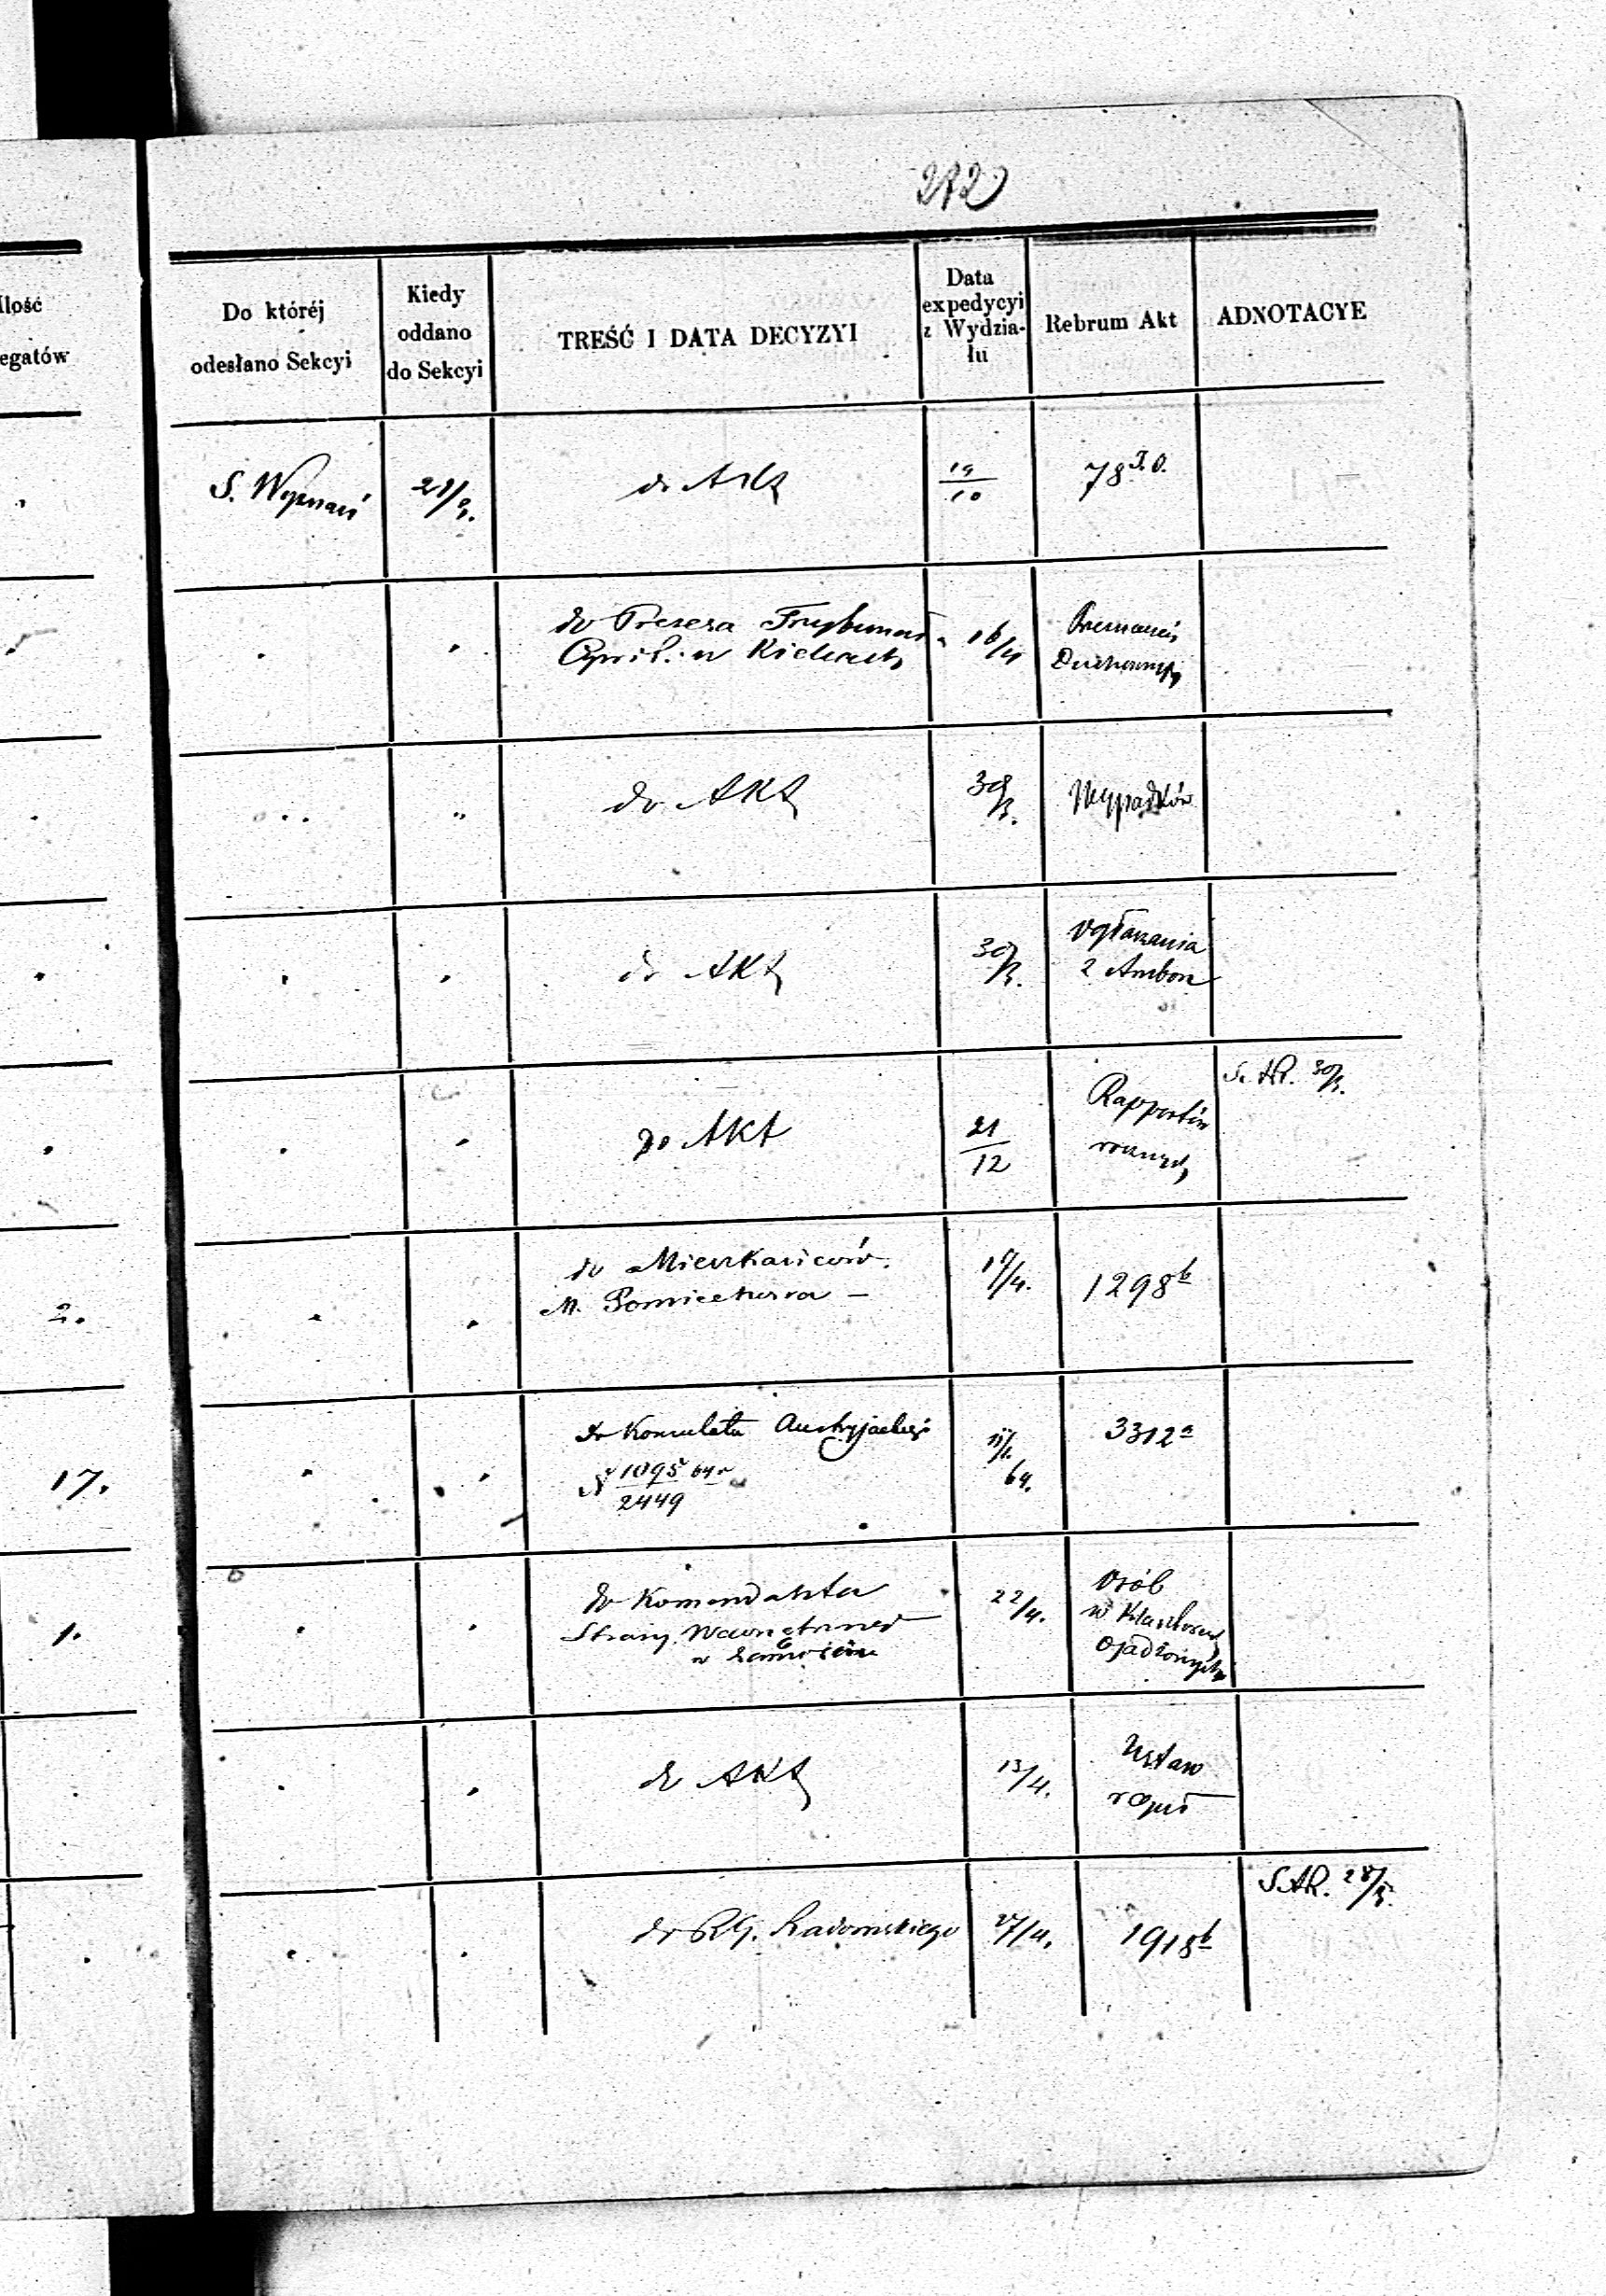 272
Ilość
egatów
Do któréj
odesłano Sekcyi
Kiedy
oddano
do Sekcyi
TREŚĆ I DATA DECYZYI
Data
expedycyi
z Wydzia-
łu
Rebrum Akt
ADNOTACYE
S. Wyznań
21/3.
do Akt
19/10
78
do Prezesa Trybunału
Cywil. w Kielcach
16/4
Duchownych
do Akt
30/3.
Wypadków
do Akt
30/3.
Ogłaszania
z Ambon
do Akt
21/12
Rapportów
rocznych
30/3.
2.
do Mieszkańców
M.
19/4.
1298 b
17.
do Konsulatu Austryjackiego
N 1095 64 r
2449
64.
3312 a
1.
do Komendanta
Straży Wewnętrznej
w Zamościu
22/4.
Osób
w Klasztorach
Osadzonych
do Akt
13/4.
Ustaw
do RG. Radomskiego
27/4.
1918 b
28/3.